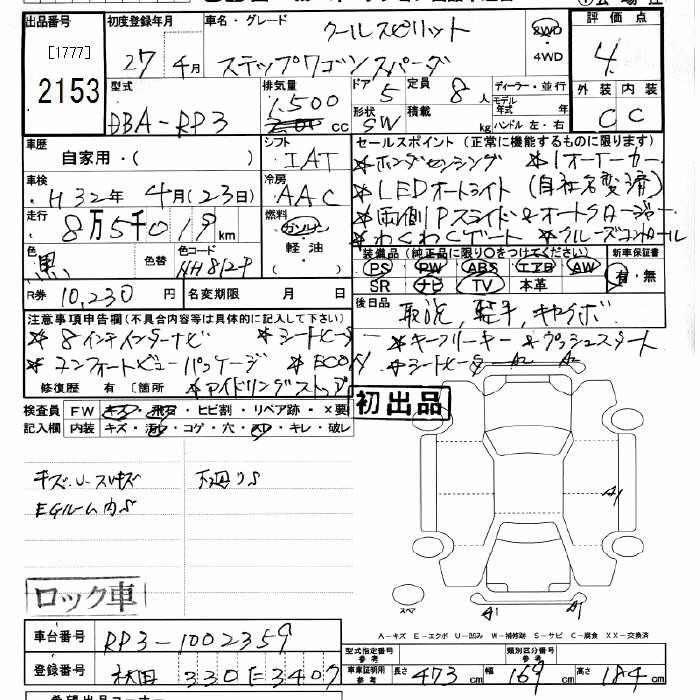 出品番号 初度登録年月 車名・グレード クールスピリット 2WD 4WD 評価点
[1777]
2153 27年4月 ステップワゴンスパーダ 4
型式 排気量 ドア 定員 ディーラー・並行 外装 内装
DBA-RP3 1,500 cc 5 8人 モデル年式 年 C C
形状 SW 積載 kg ハンドル 左・右
車歴 自家用・( ) シフト IAT セールスポイント(正常に機能するものに限ります)
＊ホンダセンシング ＊1オーナーカー
車検 H32年4月(23日) 冷房 AAC ＊LEDオートライト(自社名変済)
走行 8万5千019km 燃料 ガソリン 軽油 ( ) ＊両側Pスライドドア
＊わくわくゲート ＊クルーズコントロール
色 黒 色替 色コード NH812P 装備品(純正品に限り○をつけてください) 新車保証書
PS PW ABS エアB AW 有・無
SR ナビ TV 本革
R券 10,230円 名変期限 月 日 後日品 取説,
注意事項申告欄(不具合内容等は具体的に記入して下さい)
＊8インチインターナビ ＊シートヒーター ＊キーフリーキー ＊プッシュスタート
＊コンフォートビューパッケージ ＊ECON ＊シートヒーター A2 A2
修復歴 有〔箇所 ＊アイドリングストップ
検査員 FW キズ・飛石・ヒビ割・リペア跡・×要 初出品
記入欄 内装 キズ・汚レ・コゲ・穴・スレ・キレ・破レ
キズ・U・スリキズ 下廻りS
EGルーム内S
A1
ロック車
スペア A1 A1
A－キズ E－エクボ U－凹み W－補修跡 S－サビ C－腐食 XX－交換済
車台番号 RP3-1002359 型式指定番号 参考 類別区分番号 参考
登録番号 秋田 330 に 3407 車庫証明用 参考 長さ 473cm 幅 169cm 高さ 184cm